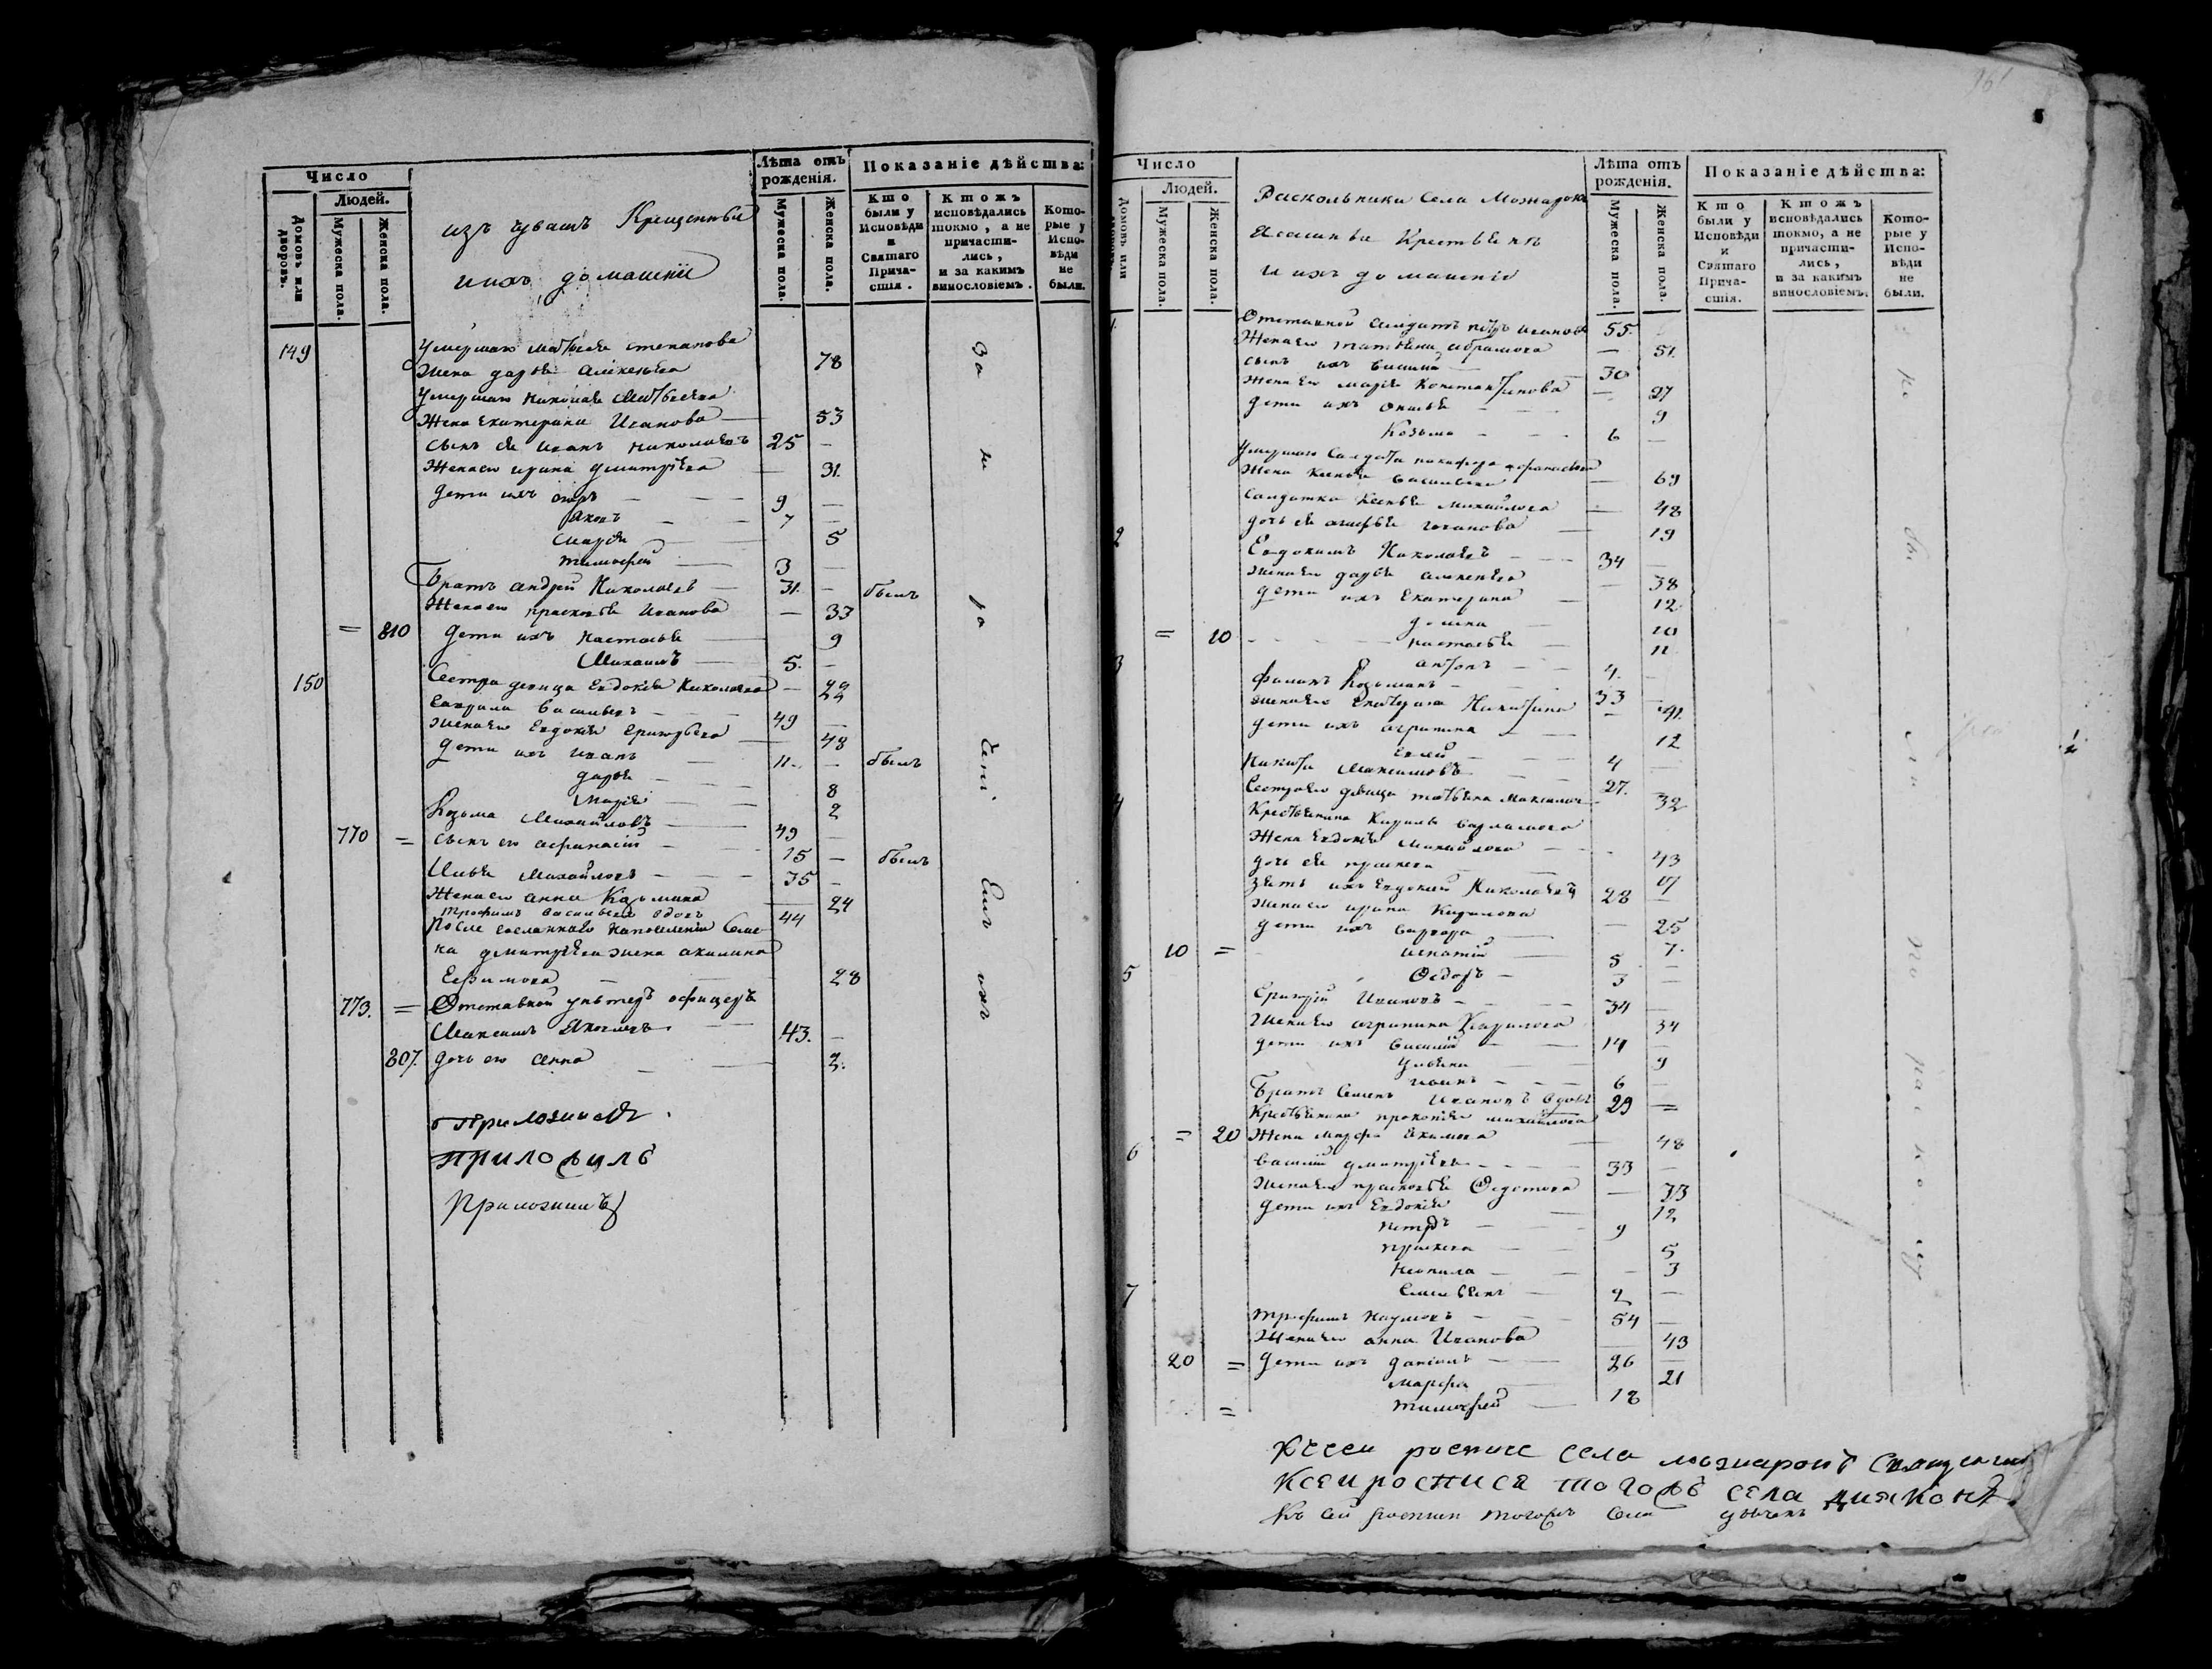 Число
Людей.
Домовъ или дворовъ.
Мужеска пола.
Женска пола.
изъ чувашъ Крещенныи
и ихъ домашніи
Лѣта отъ рожденія.
Мужеска пола.
Женска пола.
Показаніе дѣйства:
Кто были у Исповѣди и Святаго Причастія.
Ктожъ исповѣдались токмо, а не причастились, и за какимъ винословіемъ.
Которые у Исповѣди не были.
149 Умершаго Матвѣя Степанова
жена Дарья Алексѣева 78
Умершаго Николая Матвѣева
Жена Екатерина Иванова 53
сынъ ея Иванъ Николаевъ 25 —
Жена его Ирина Дмитріева — 31.
дети ихъ 9 —
Яковъ 7 —
Марья 5
Тимофей 3 —
Братъ Андрей Николаевъ 31. — былъ
Жена его Прасковья Иванова — 33
= 810 Дети ихъ Настасья 9
Михаилъ 5. —
150 Сестра девица Евдокія Николаева — 22
Гаврила Васильевъ 49 —
жена его Евдокія Григорьева 48
дети ихъ Иванъ 11. — былъ
Дарья 8
Марія 2
Козьма Михайловъ 49 —
770 = сынъ его Афанасій 15 — былъ
Илья Михайловъ 35 —
Жена его Анна Козьмина 24
Трофимъ Васильевъ вдовъ 44
После сосланнаго на поселеніе Семе-
на Дмитріева жена Акилина
Ефимова 28
773. = Отставной унтеръ офицеръ
Максимъ Яковлевъ 43. —
807. дочь его Анна 2.
За не ра чені емъ ихъ
приложилъ
приложилъ
Приложилъ
161
Число
Людей.
Домовъ или
Мужеска пола.
Женска пола.
Раскольники села Можарокъ
Ясашныи Крестьянъ
и ихъ домашніи
Лѣта отъ рожденія.
Мужеска пола.
Женска пола.
Показаніе дѣйства:
Кто были у Исповѣди и Святаго Причастія.
Ктожъ исповѣдались токмо, а не причастились, и за какимъ винословіемъ.
Которые у Исповѣди не были.
1. Отставной солдатъ Петръ Ивановъ 55.
Жена его Татьяна Абрамова — 51.
сынъ ихъ 30
Жена его Марія Константинова — 27
дети ихъ 9
Козьма 6 —
Умершаго Солдата Никифора Афанасьева
Жена Ксенья Васильева — 69
Солдатка Ксенья Михайлова — 48
2 дочь ея Иванова 19
Евдокимъ Николаевъ 34 —
жена его Дарья Алексѣева — 38
дети ихъ Екатерина — 12
Домна 10
= 10 Настасья 11
3 Антонъ 4. —
Филипъ Козьминъ 33 —
жена его Екатерина Никитина — 41.
дети ихъ Агрипина 12
4 —
Никита Максимовъ 27.
4 Сестра его девица Татьяна Максимова 32
Крестьянина Кирилы Варламова
Жена Евдокія Михайлова 43
дочь ея 17
зять ихъ Евдокимъ Николаевъ 28 —
жена его Ирина Кирилова — 25
дети ихъ Варвара 7.
10 = Игнатій 5 —
5 Федоръ 3 —
Григорій Ивановъ 34 —
жена его Агрипина Кирилова 34
дети ихъ Василій 14 —
Ульяна 9
6 —
Братъ Семенъ Ивановъ вдовъ 29 =
Крестьянина Прокопія Михайлова
= 20 Жена Марфа Екимова 48
6 Василій Дмитріевъ 33 —
жена его Прасковья Федотова — 33
дети ихъ Евдокія 12
Петръ 9
5
Неонила — 3
7 2 —
Трофимъ Наумовъ 54 —
Жена его Анна Иванова 43
20 = дети ихъ Даніилъ 26 —
Марфа 21
= Тимофей 18
не бы ли по рас ко лу
Къ сеи росписе села Можарокъ Священникъ
К сеи росписе тогожъ села диаконъ
Къ сей росписи тогожъ села дьячекъ